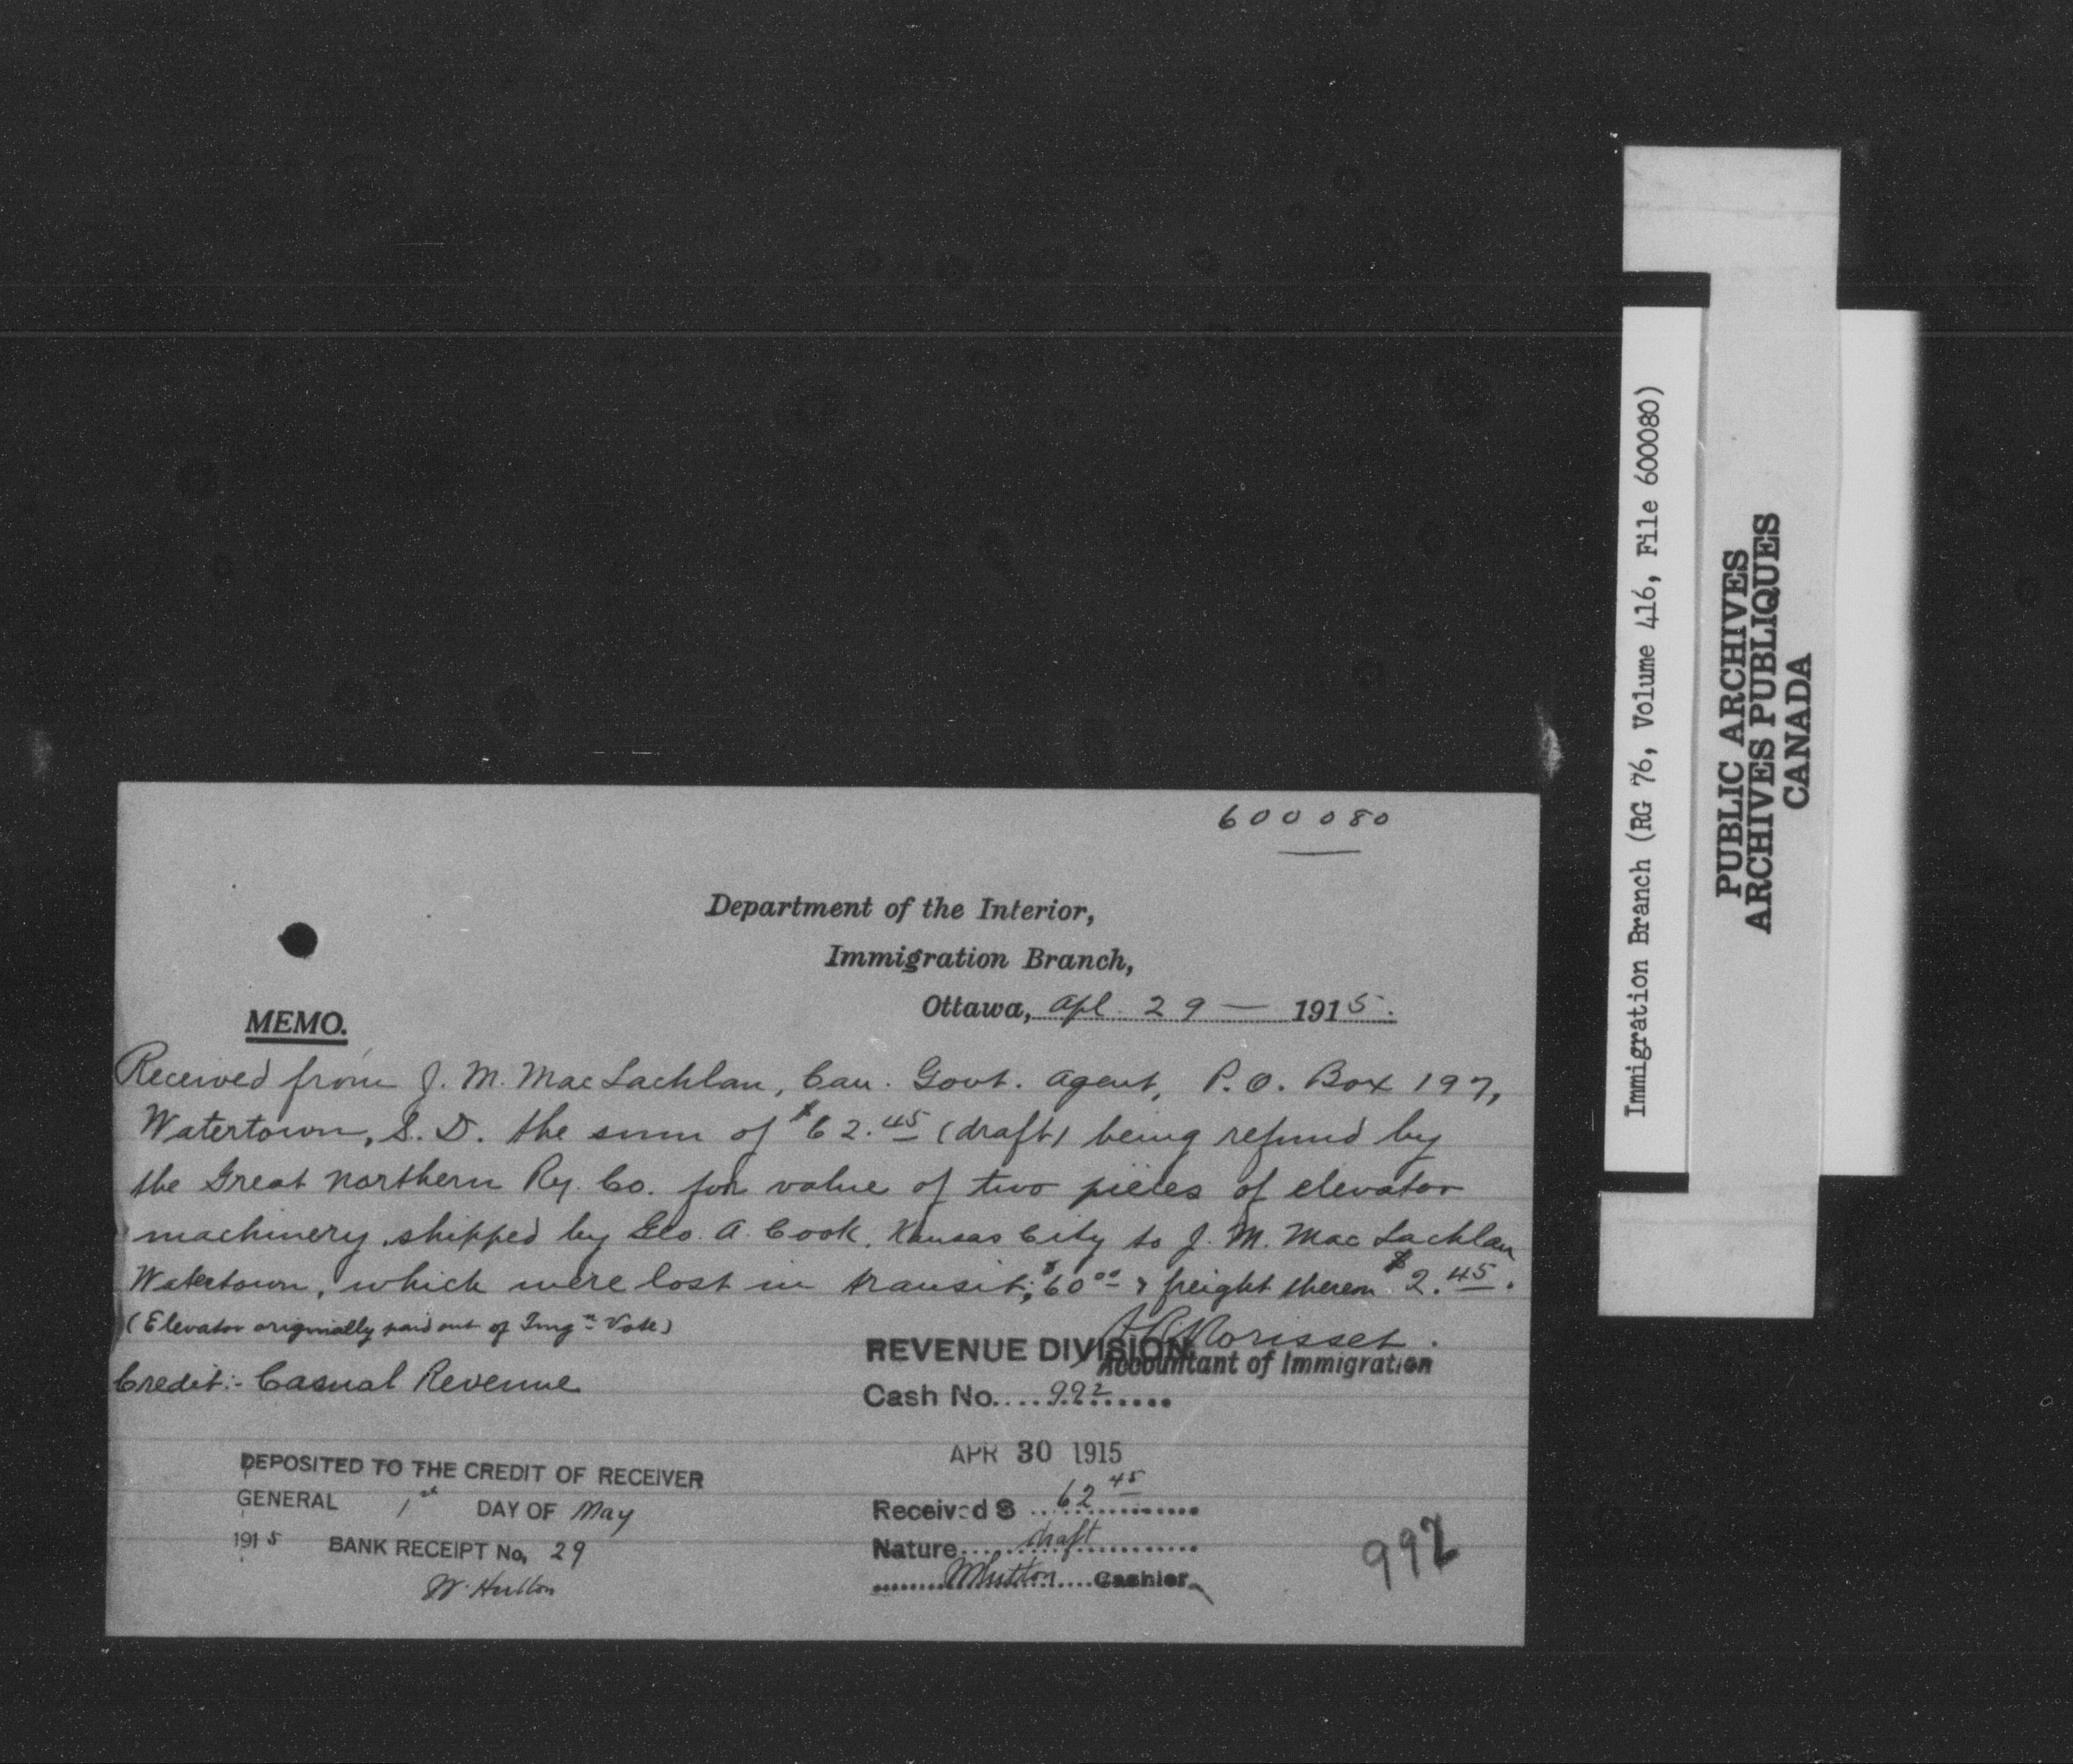 600080
Department of the Interior,
Immigration Branch,
Ottawa, Apl. 29 — 1915.
MEMO.
Received from J. M. MacLachlan, Can. Govt. Agent, P.O. Box 197,
Watertown, S.D. the sum of $62.45 (draft) being refund by
the Great Northern Ry. Co. for value of two pieces of elevator
machinery shipped by Geo. A. Cook, Kansas City to J. M. MacLachlan
Watertown, which were lost in transit; $60.00 & freight thereon $2.45.
(Elevator originally paid out of Img'n Vote)
Morisset.
Accountant of Immigration
Credit:- Casual Revenue
REVENUE DIVISION
Cash No....992......
APR 30 1915
Received $ ..62.45..........
Nature.....draft..........
........WHutton....Cashier
DEPOSITED TO THE CREDIT OF RECEIVER
GENERAL 1st DAY OF May
1915 BANK RECEIPT No, 29
W. Hutton
992
Immigration Branch (RG 76, Volume 416, File 600080)
PUBLIC ARCHIVES
ARCHIVES PUBLIQUES
CANADA